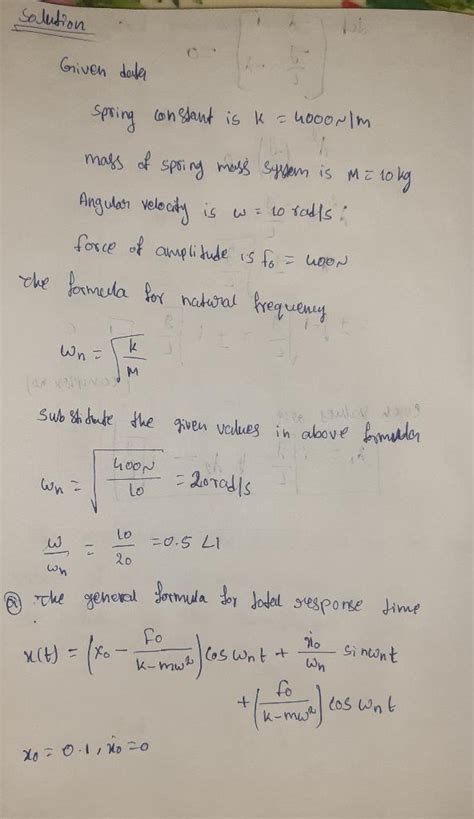 Solution
Given data
Spring constant is k = 4000N/m
mass of spring mass system is M = 10kg
Angular velocity is ω = 10 rad/s;
force of amplitude is f₀ = 400N
The formula for natural frequency
ωn = √(k/M)
Substitute the given values in above formula
ωn = √(400N/10) = 20rad/s
ω/ωn = 10/20 = 0.5 <1
ⓐ The general formula for total response time
x(t) = (x₀ - f₀/(k-mω²)) cos ωnt + ẋ₀/ωn sinωnt
+ (f₀/(k-mω²)) cos ωnt
x₀ = 0.1, ẋ₀ = 0